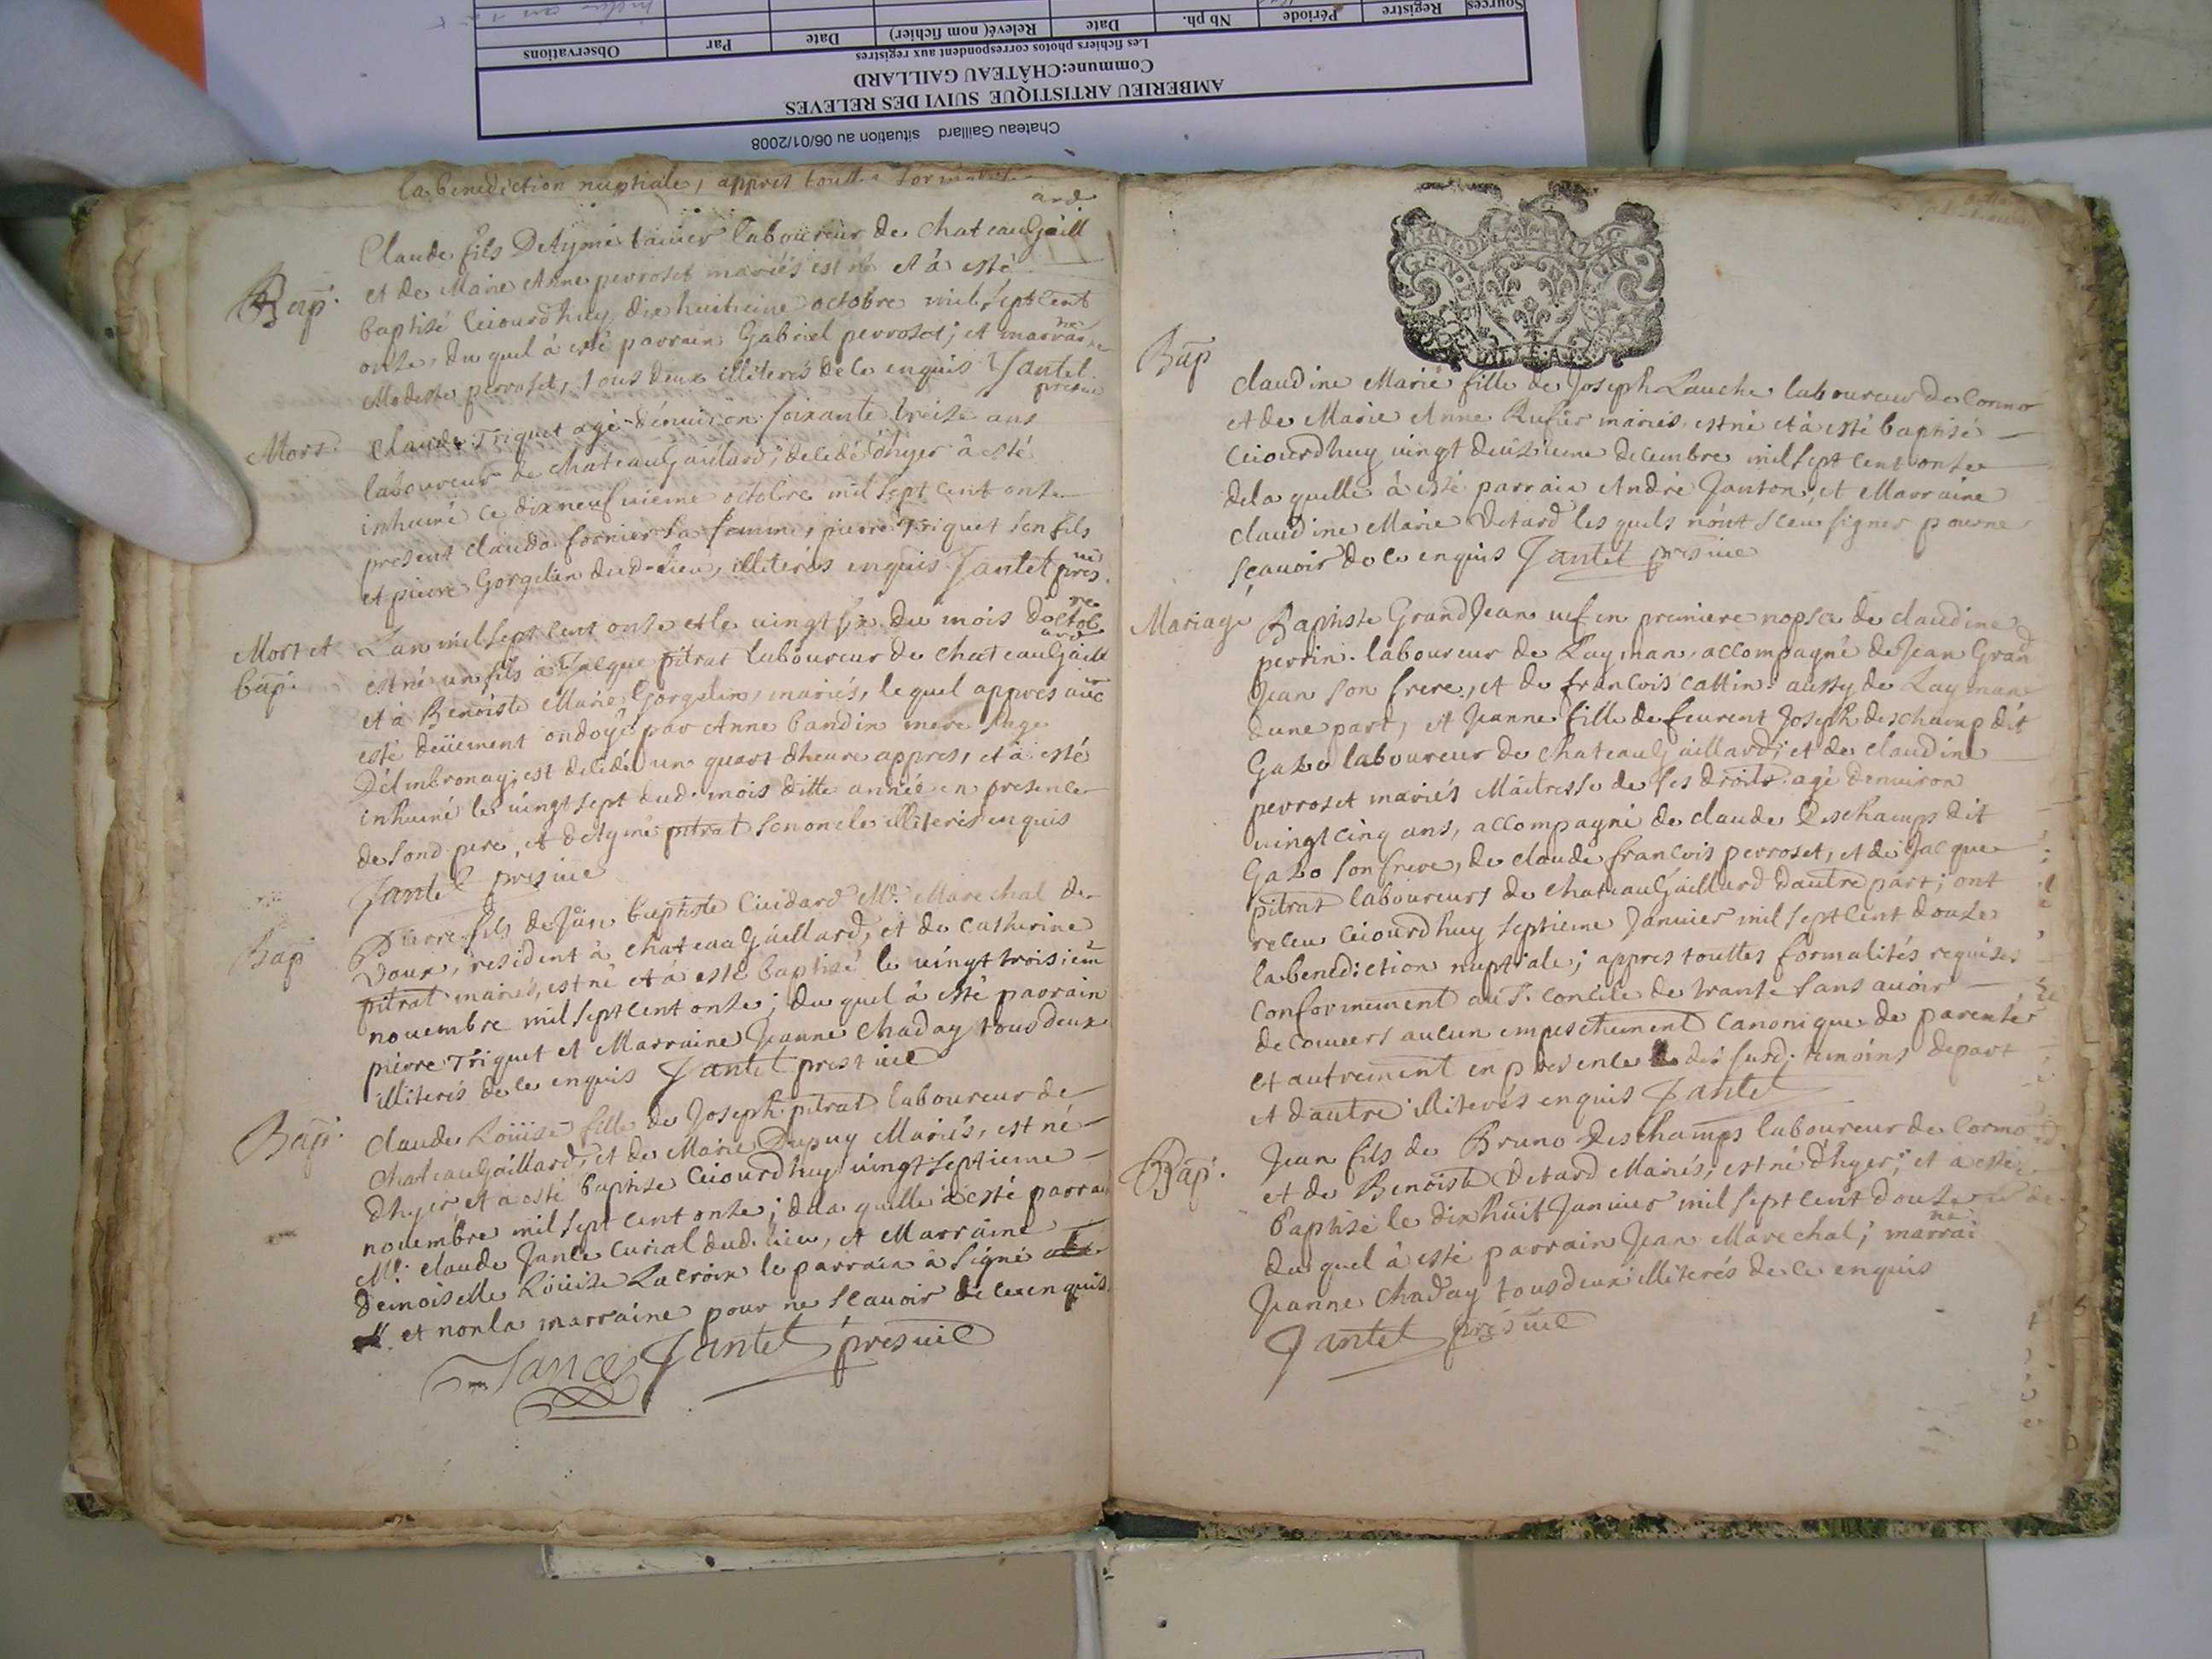 Chateau Gaillard situation au 06/01/2008
AMBERIEU ARTISTIQUE SUIVI DES RELEVES
Commune:CHÂTEAU GAILLARD
Les fichiers photos correspondent aux registres
Sources Registre Période Nb ph. Date Relevé( nom fichier) Date Par Observations
la benediction nuptiale, appres touttes
Claude fils DeAymé laboureur de chateauGaillard
Bap. et de Marie Anne perroset mariés est né et à esté
baptisé ceiourdhuy dix huitieme octobre mil sept cent
onze, du quel à esté parrain Gabriel perroset; et marraine
Modeste perroset, tous deux illiterés de ce enquis Jantet
Mort. Claude Triquet agé d'enuiron soixante treize ans
laboureur de chateauGaillard; decedé d'hyer à esté
inhumé ce dixneufuieme octobre mil sept cent onze
present claude fornier sa femme, pierre Triquet son fils
et pierre Gorgelin dud. lieu, illiterés enquis Jantet
Mort et L'an mil sept cent onze et le uingt six du mois d'octobre
bap. est né un fils à Jacque pitrat laboureur de chateauGaillard
et à Benoiste Marie Gorgelin, mariés, le quel appres auoir
esté deüement ondoyé par Anne bandin mere sage
D'Ambronay, est decédé un quart d'heure appres, et à esté
inhumé le uingt sept dud. mois ditte année en presence
de sond. pere, et deAymé pitrat son oncle illiterés enquis
Jantet pres uic
Bap Pierre fils de Jean baptiste Cuidard Mr. Marechal de
Doux, resident à chateauGaillard, et de Catherine
pitrat mariés, est né et à esté baptisé le uingt troisiem
nouembre mil sept cent onze; du quel à esté parrain
pierre Triquet et Marraine Jeanne Chaday tous deux
illiterés de ce enquis Jantet prest uic
Bap. claude Loüise fille de Joseph pitrat laboureur de
chateauGaillard, et de Marie Dupuy Mariés, est né
d'hyer et à esté baptisé ceiourdhuy uingt septieme
nouembre mil sept cent onze; de la quelle à esté parrain
Mr. claude Jance curial dud. lieu, et Marraine
Demoiselle Loüise Lacroix le parrain à signé
et non la marraine pour ne scauoir de ce enquis
Jance Jantet pres uic
GEN
Bap
claudine Marie fille de Joseph Lauche laboureur de Cormo
et de Marie Anne Rufier mariés, est né et à esté baptisé
ceiourdhuy uingt deuxieme decembre mil sept cent onze
de la quelle à esté parrain André Janton, et Marraine
claudine Marie Detard les quels n'ont sceu signer pour ne
scauoir de ce enquis Jantet pres uic
Mariage Baptiste GrandJean uef en premiere nopse de claudine
perrin. laboureur de Layman, accompagné de Jean Grand
Jean son frere, et de francois cattin. aussy de Layman
d'une part, et Jeanne fille de feurent Joseph deschamp dit
Gazo laboureur de chateauGaillard; et de claudine
perroset mariés Maîtresse de ses droits. agé d'enuiron
uingt cinq ans, accompagné de claude Deschamps dit
Gazo son frere, de claude francois perroset, et de Jacque
pitrat laboureurs de chateauGaillard d'autre part; ont
receu ceiourdhuy septieme Januier mil sept cent douze
la benediction nuptiale; appres touttes formalités requises
conformement au S. concile de trante sans auoir
decouuert aucun empeschement canonique de parenté
et autrement en presence des susd. temoins de part
et d'autre illiterés enquis Jantet
Bap. Jean fils de Bruno Deschamps laboureur de Cormo
et de Benoiste Detard Mariés, est né d'hyer; et a esté
baptisé le dix huit Januier mil sept cent douze
du quel à esté parrain Jean Marechal; marraine
Jeanne Chaday tous deux illiterés de ce enquis
Jantet pres uic